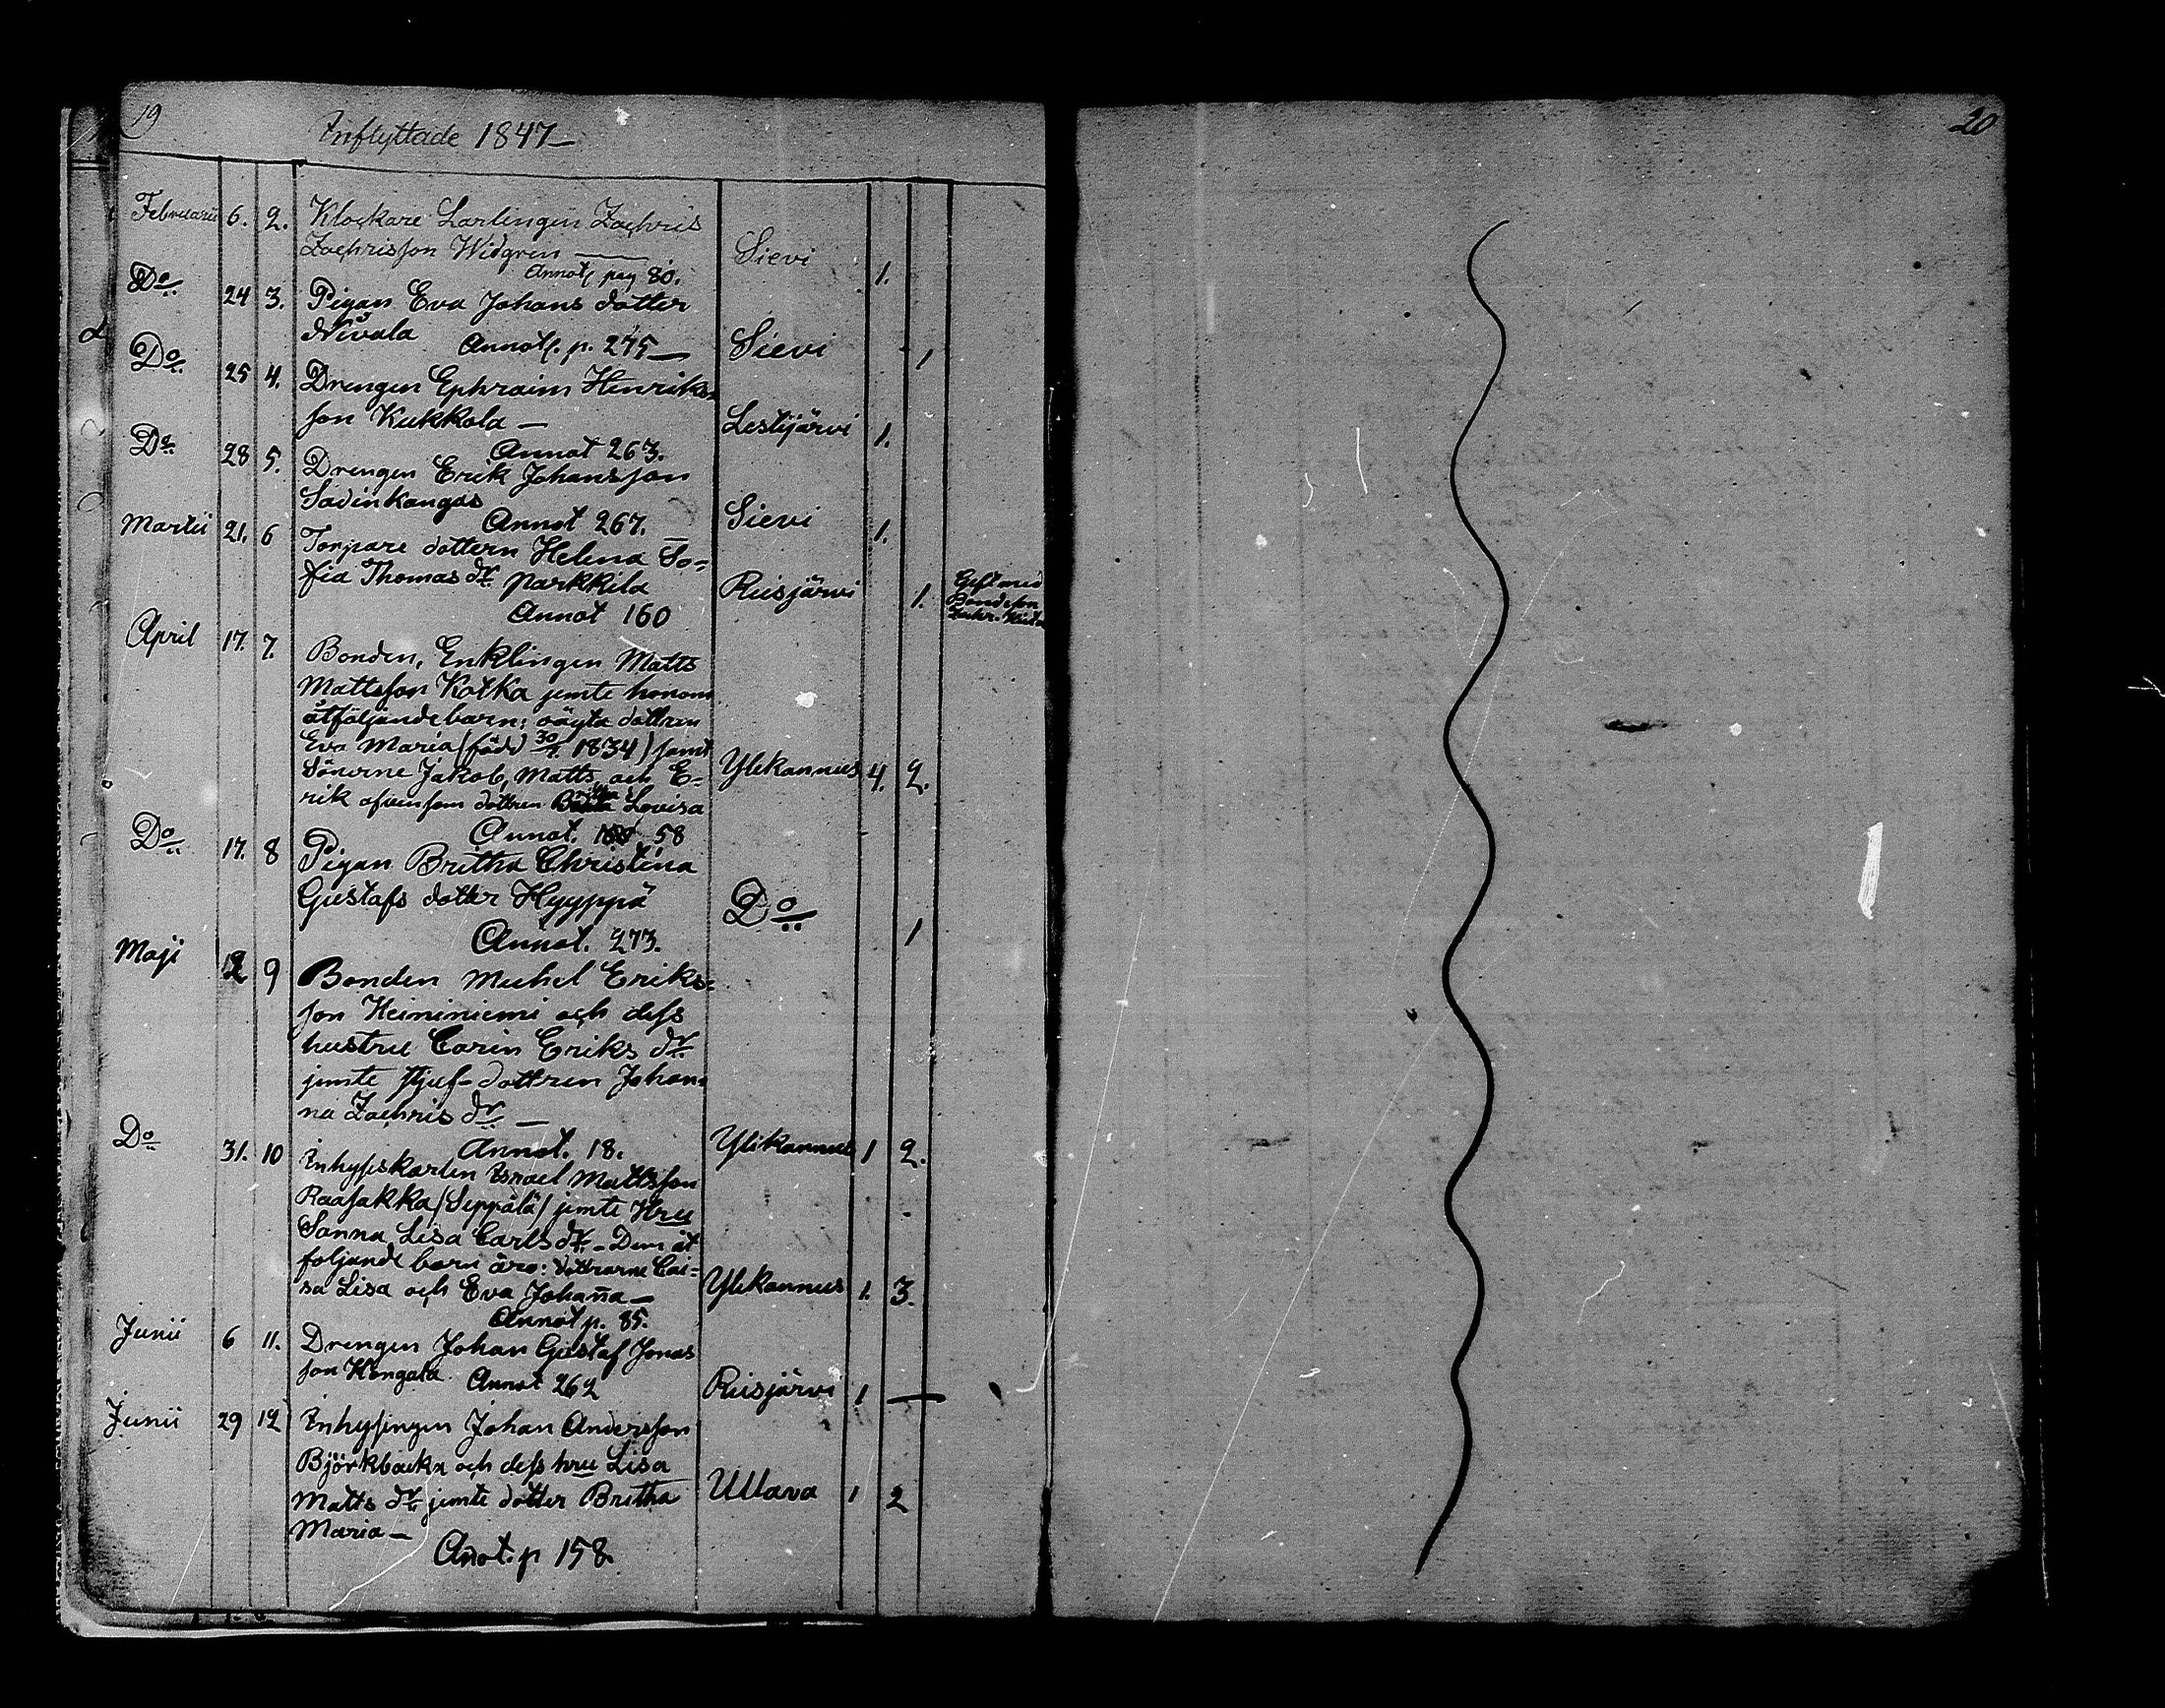 19
Inflyttade 1847
Februarii 6. 2. Klockare Lärlingen Zachris
Zachrisson Widgren Sievi 1.
Annot. pag 80.
Do 24 3. Pigan Eva Johans dotter
Nivala Sievi 1
Annot. p. 275
Do 25 4. Drengen Ephraim Henriks
son Kukkola Lestijärvi 1.
Annot 263.
Do 28 5. Drengen Erik Johansson
Savinkangas Sievi 1.
Annot 267.
Martii 21. 6 Torpare dottern Helena So=
fia Thomas dr. Parkkila Reisjärvi 1. Gift med
Bondeson
Zachr.
Annot 160
April 17. 7. Bonden, Enklingen Matts
Mattsson Kotka jemte honom
åtföljande barn: oägta dottren
Eva Maria (född 30/7. 1834) samt
Sönerne Jakob, Matts, och E- Ylikannus 4. 2.
rik äfvensom dottren Lovisa
Annot. 58
Do 17. 8 Pigan Britha Christina
Gustafs dotter Hyyppä Do 1
Annot. 273.
Maji 12 9 Bonden Michel Eriks=
son Heininiemi och dess
hustru Carin Eriks dr.
jemte stjuf-dottren Johan=
na Zachris dr. Ylikannus 1 2.
Annot. 18.
Do 31. 10 Inhyseskarlen Israel Mattsson
Raasakka /Seppälä/ jemte Hru
Sanna Lisa Carls dr. - Dem åt
följande barn äro: döttrarne Cai=
sa Lisa och Eva Johanna Ylikannus 1. 3.
Annot p. 85.
Junii 6 11. Drengen Johan Gustaf Jonas
son Kangala Annot 262 Reisjärvi 1 —
Junii 29 12 Inhysingen Johan Andersson
Björkbacka och dess hru Lisa
Matts dr. jemte dotter Britha Ullava 1 2
Maria
Anot. p 158.
20